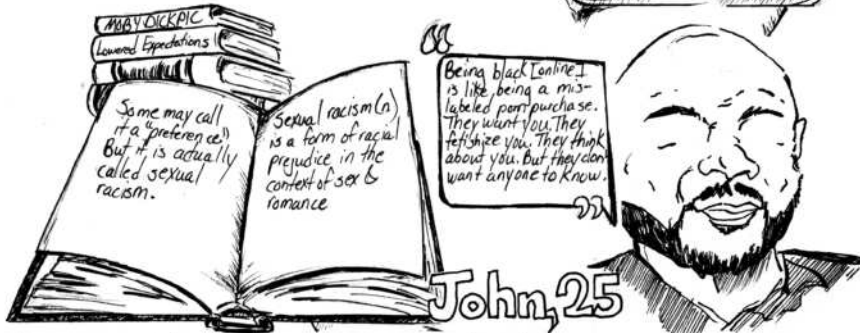 MOBY DICKPIC
Lowered Expectations
Some may call
it a "preference."
But it is actually
called sexual
racism.
Sexual racism (n)
is a form of racial
prejudice in the
context of sex &
romance
"
Being black [online]
is like being a mis-
labeled porn purchase.
They want you. They
fetishize you. They think
about you. But they don
want anyone to know.
"
John, 25